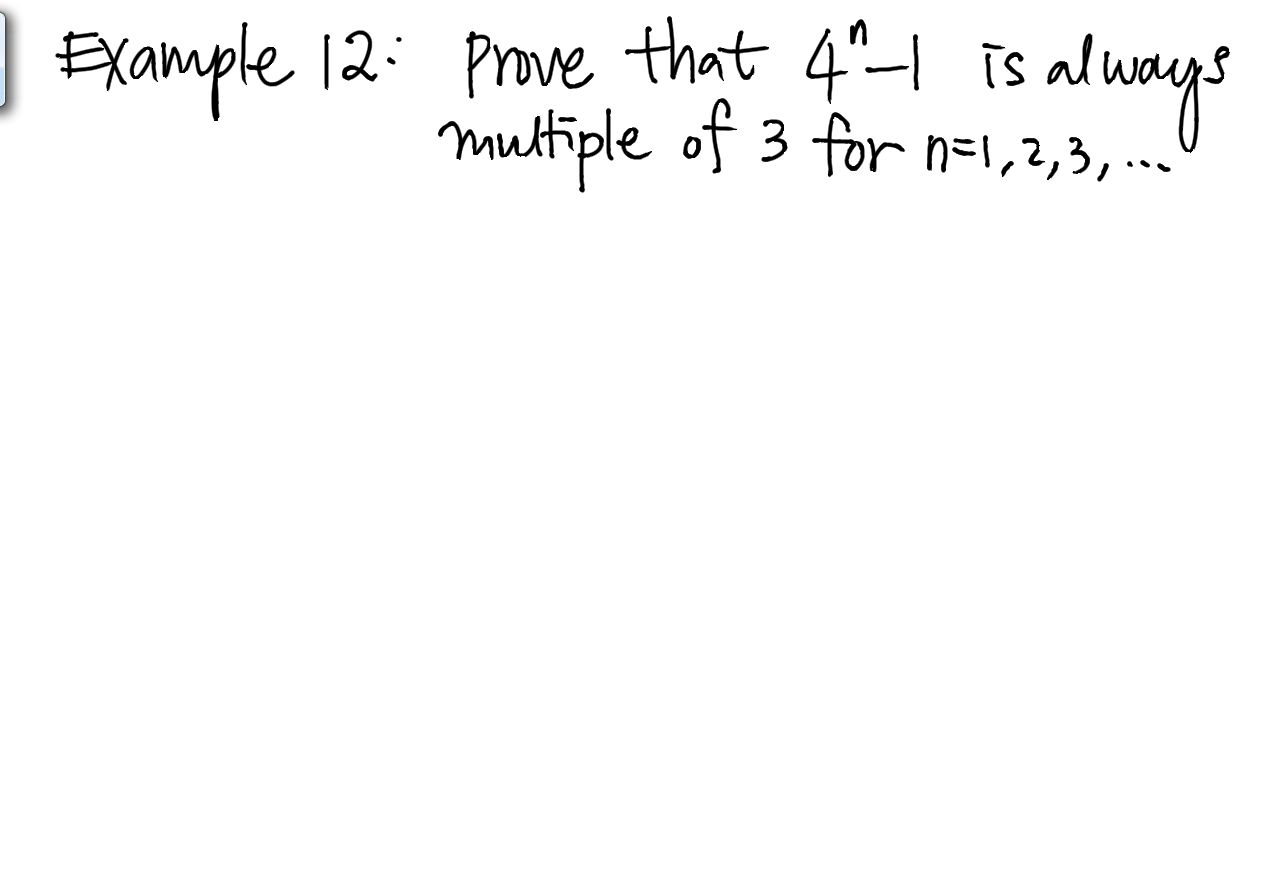 Example 12: Prove that 4ⁿ-1 is always
multiple of 3 for n=1,2,3,...